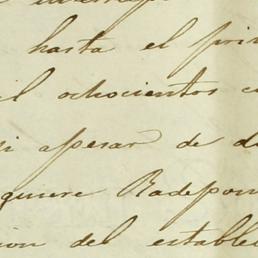 hasta el prim
il ochocientos c
i apesar de d
quiere Radepon
ion del estable